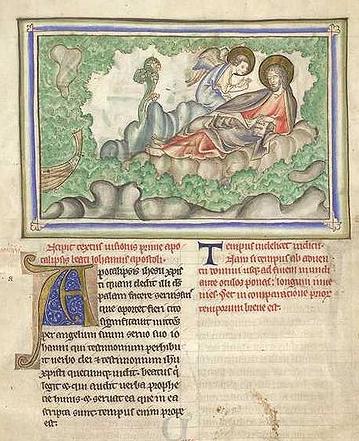 Incipit textus uisionis prime apo
calipsis beati iohannis apostoli.
Apocalipsis ihesu xpis
ti quam dedit illi ds
palam facere seruis suis
que oportet fieri cito
significauit mittens
per angelum suum seruo suo io
hanni qui testimonium perhibu
it uerbo dei et testimonium ihu
xpisti quecumque uidit. beatus qui
legit et qui audit uerba prophe
tie huius et seruat ea que in ea
scripta sunt: tempus enim prope
est.
Tempus uidelicet iudicii.
Nam si tempus ab aduen
tu domini usque ad finem mundi
ante oculos ponas: longum inue
nies. Set in comparatione prior
temporum breue est.